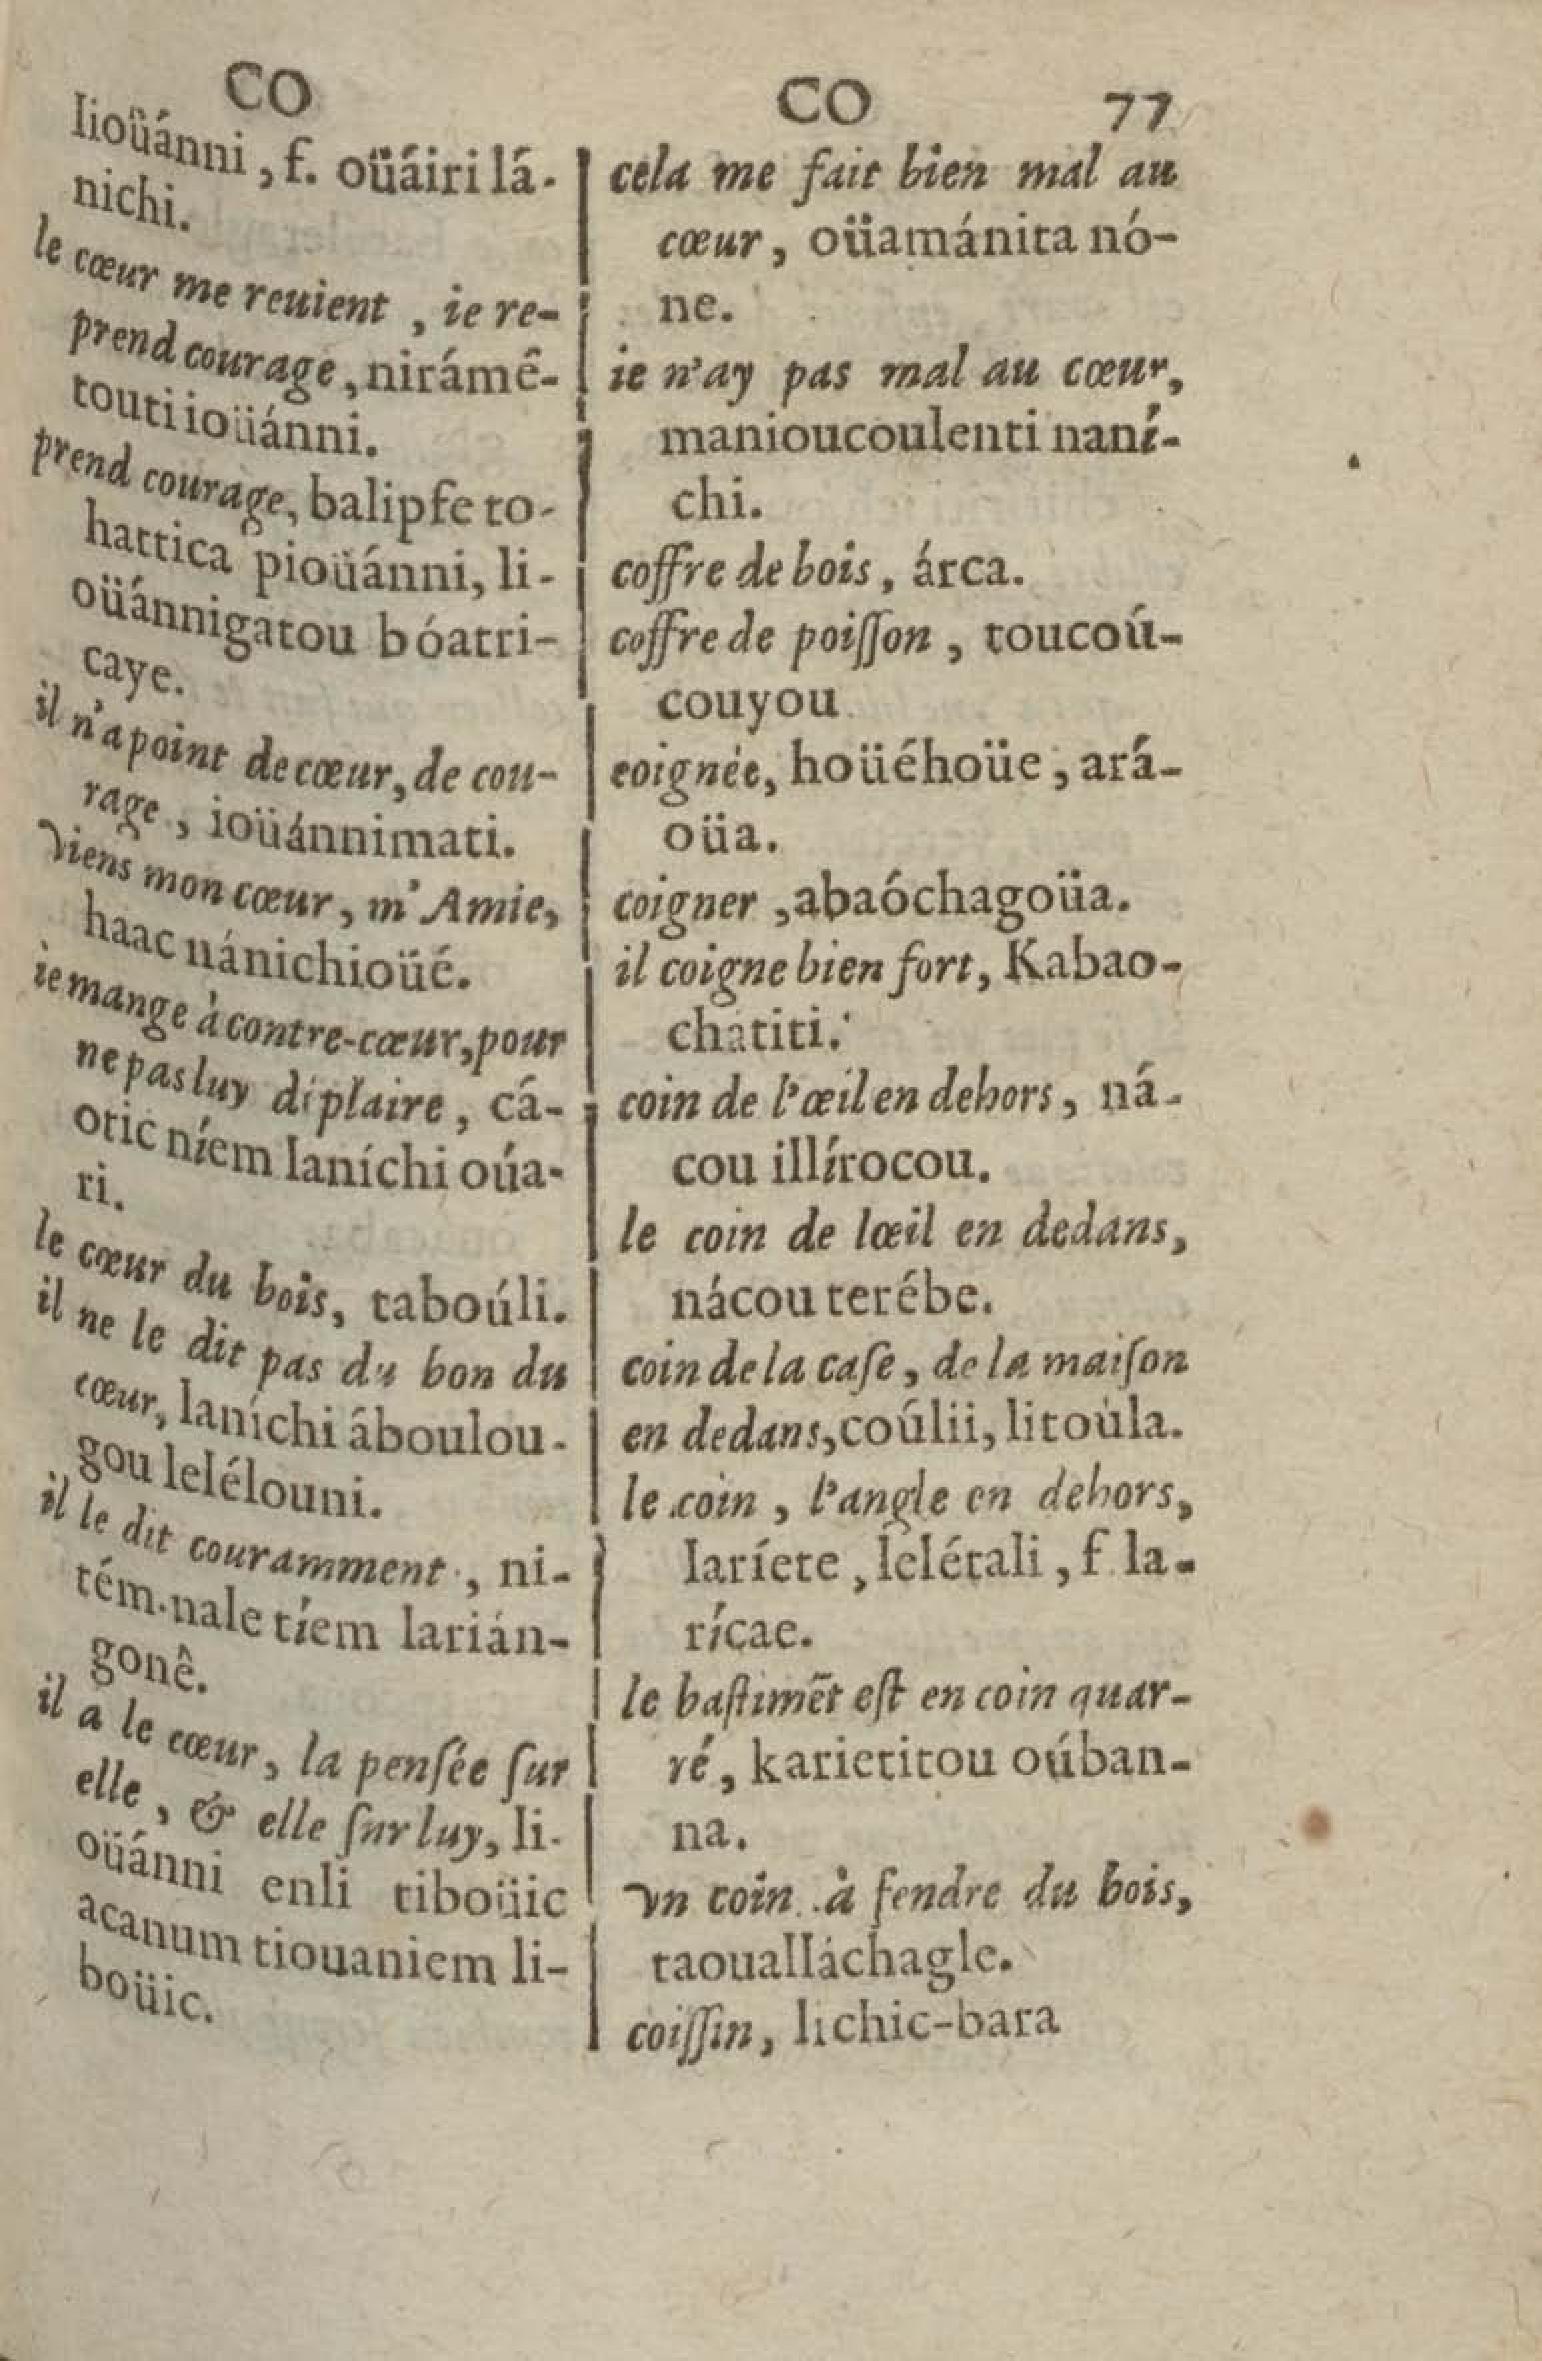 CO
Iioüánni, f. oüáiri lá-
nichi.
le cœur me reuient, ie re-
prend courage, nirámê-
touti ioüánni.
prend courage, balipfe to-
hattica pioüánni, li-
oüánnigatou bóatri-
caye.
il n'a point de cœur, de cou-
rage, ioüánnimati.
viens mon cœur, m' Amie,
haac nánichioüé.
ie mange à contre-cœur, pour
ne pas luy diplaire, cá-
otic níem laníchi oúa-
ri.
le cœur du bois, taboúli.
il ne le dit pas du bon du
cœur, laníchi áboulou-
gou lelélouni.
il le dit couramment, ni-
tém-nale tíem larián-
gonê.
il a le cœur, la pensée sur
elle, & elle sur luy, li-
oüánni enli tiboüic
acanum tiouaniem li-
boüic.
CO 77
cela me fait bien mal au
cœur, oüamánita nó-
ne.
ie n'ay pas mal au cœur,
manioucoulenti naní-
chi.
coffre de bois, árca.
coffre de poiſſon, toucoú-
couyou
coignée, hoüéhoüe, ará-
oüa.
coigner, abaóchagoüa.
il coigne bien fort, Kabao-
chatiti.
coin de l'œil en dehors, ná-
cou illírocou.
le coin de lœil en dedans,
nácou terébe.
coin de la caſe, de la maiſon
en dedans, coúlii, litoùla.
le coin, l'angle en dehors,
laríete, lelétali, f. la-
rícae.
le baſtimēt eſt en coin quar-
ré, karietitou oúban-
na.
vn coin à fendre du bois,
taoualláchagle.
coiſſin, lichic-bara